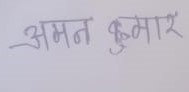 अमन कुमार